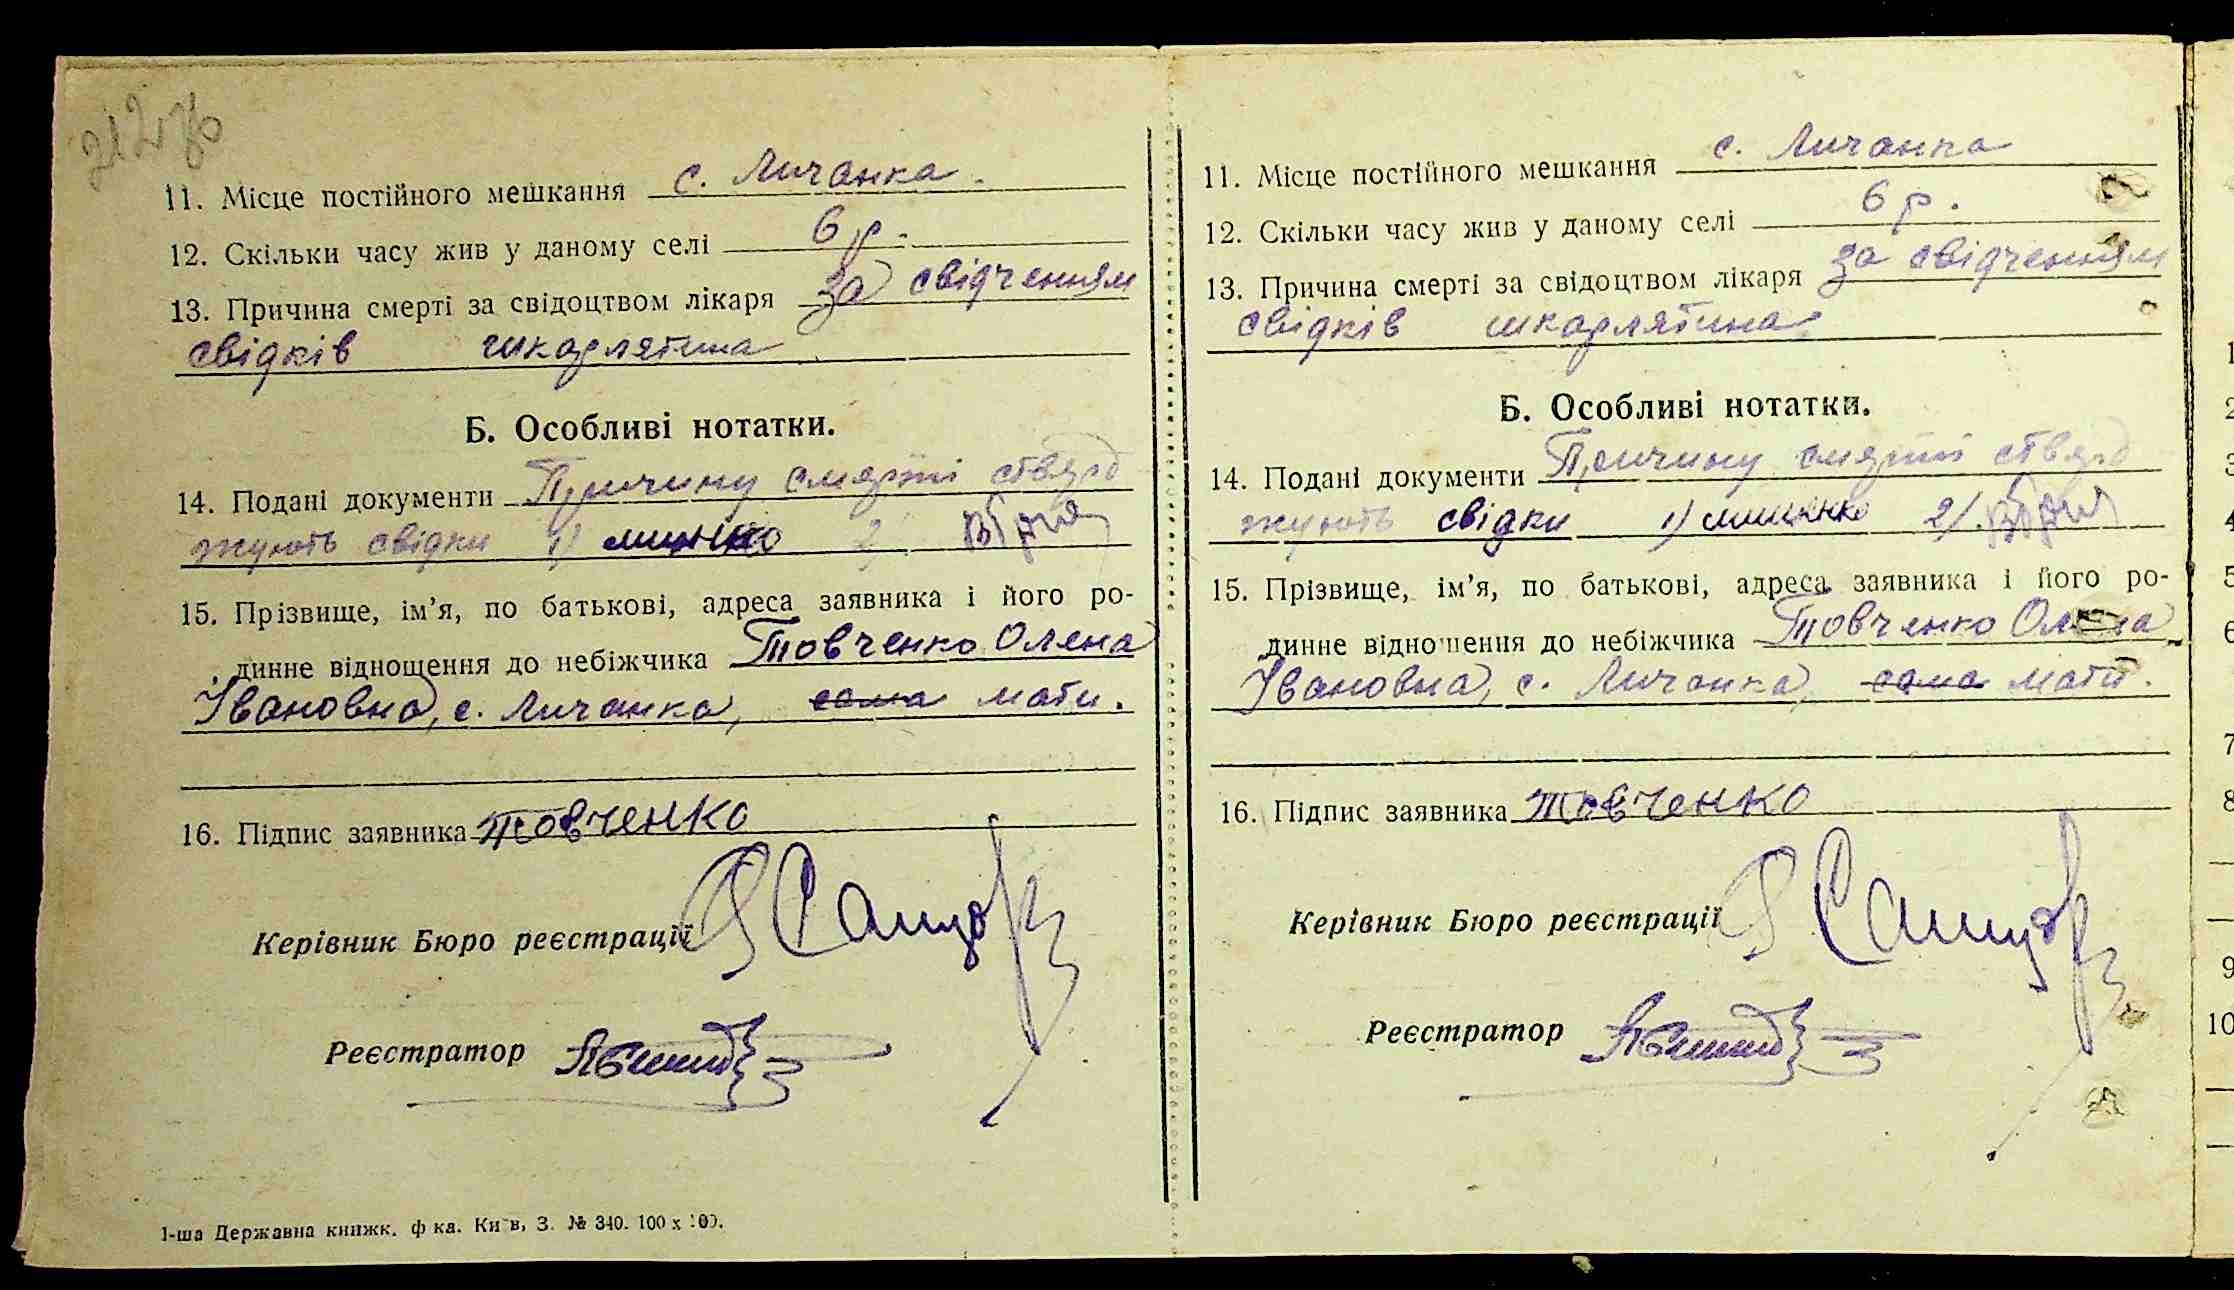 11. Місце постійного мешкання с. Личанка.
12. Скільки часу жив у даному селі 6 р.
13. Причина смерті за свідоцтвом лікаря за свідченням
свідків шкарлятина
Б. Особливі нотатки.
14. Подані документи Причину смерті стверд
жують свідки 1) 2)
15. Прізвище, ім'я, по батькові, адреса заявника і його ро-
динне відношення до небіжчика Товченко Олена
Івановна, с. Личанка, сама мати.
16. Підпис заявника Товченко
Керівник Бюро реєстрації
Реєстратор
1-ша Державна книжк. ф-ка. Київ, З. № 340. 100 х 100.
11. Місце постійного мешкання с. Личанка
12. Скільки часу жив у даному селі 6 р.
13. Причина смерті за свідоцтвом лікаря за свідченням
свідків шкарлятина
Б. Особливі нотатки.
14. Подані документи Причину смерті стверд
жують свідки 1) 2)
15. Прізвище, ім'я, по батькові, адреса заявника і його ро-
динне відношення до небіжчика Товченко Олена
Івановна, с. Личанка, сама мати.
16. Підпис заявника Товченко
Керівник Бюро реєстрації
Реєстратор
10